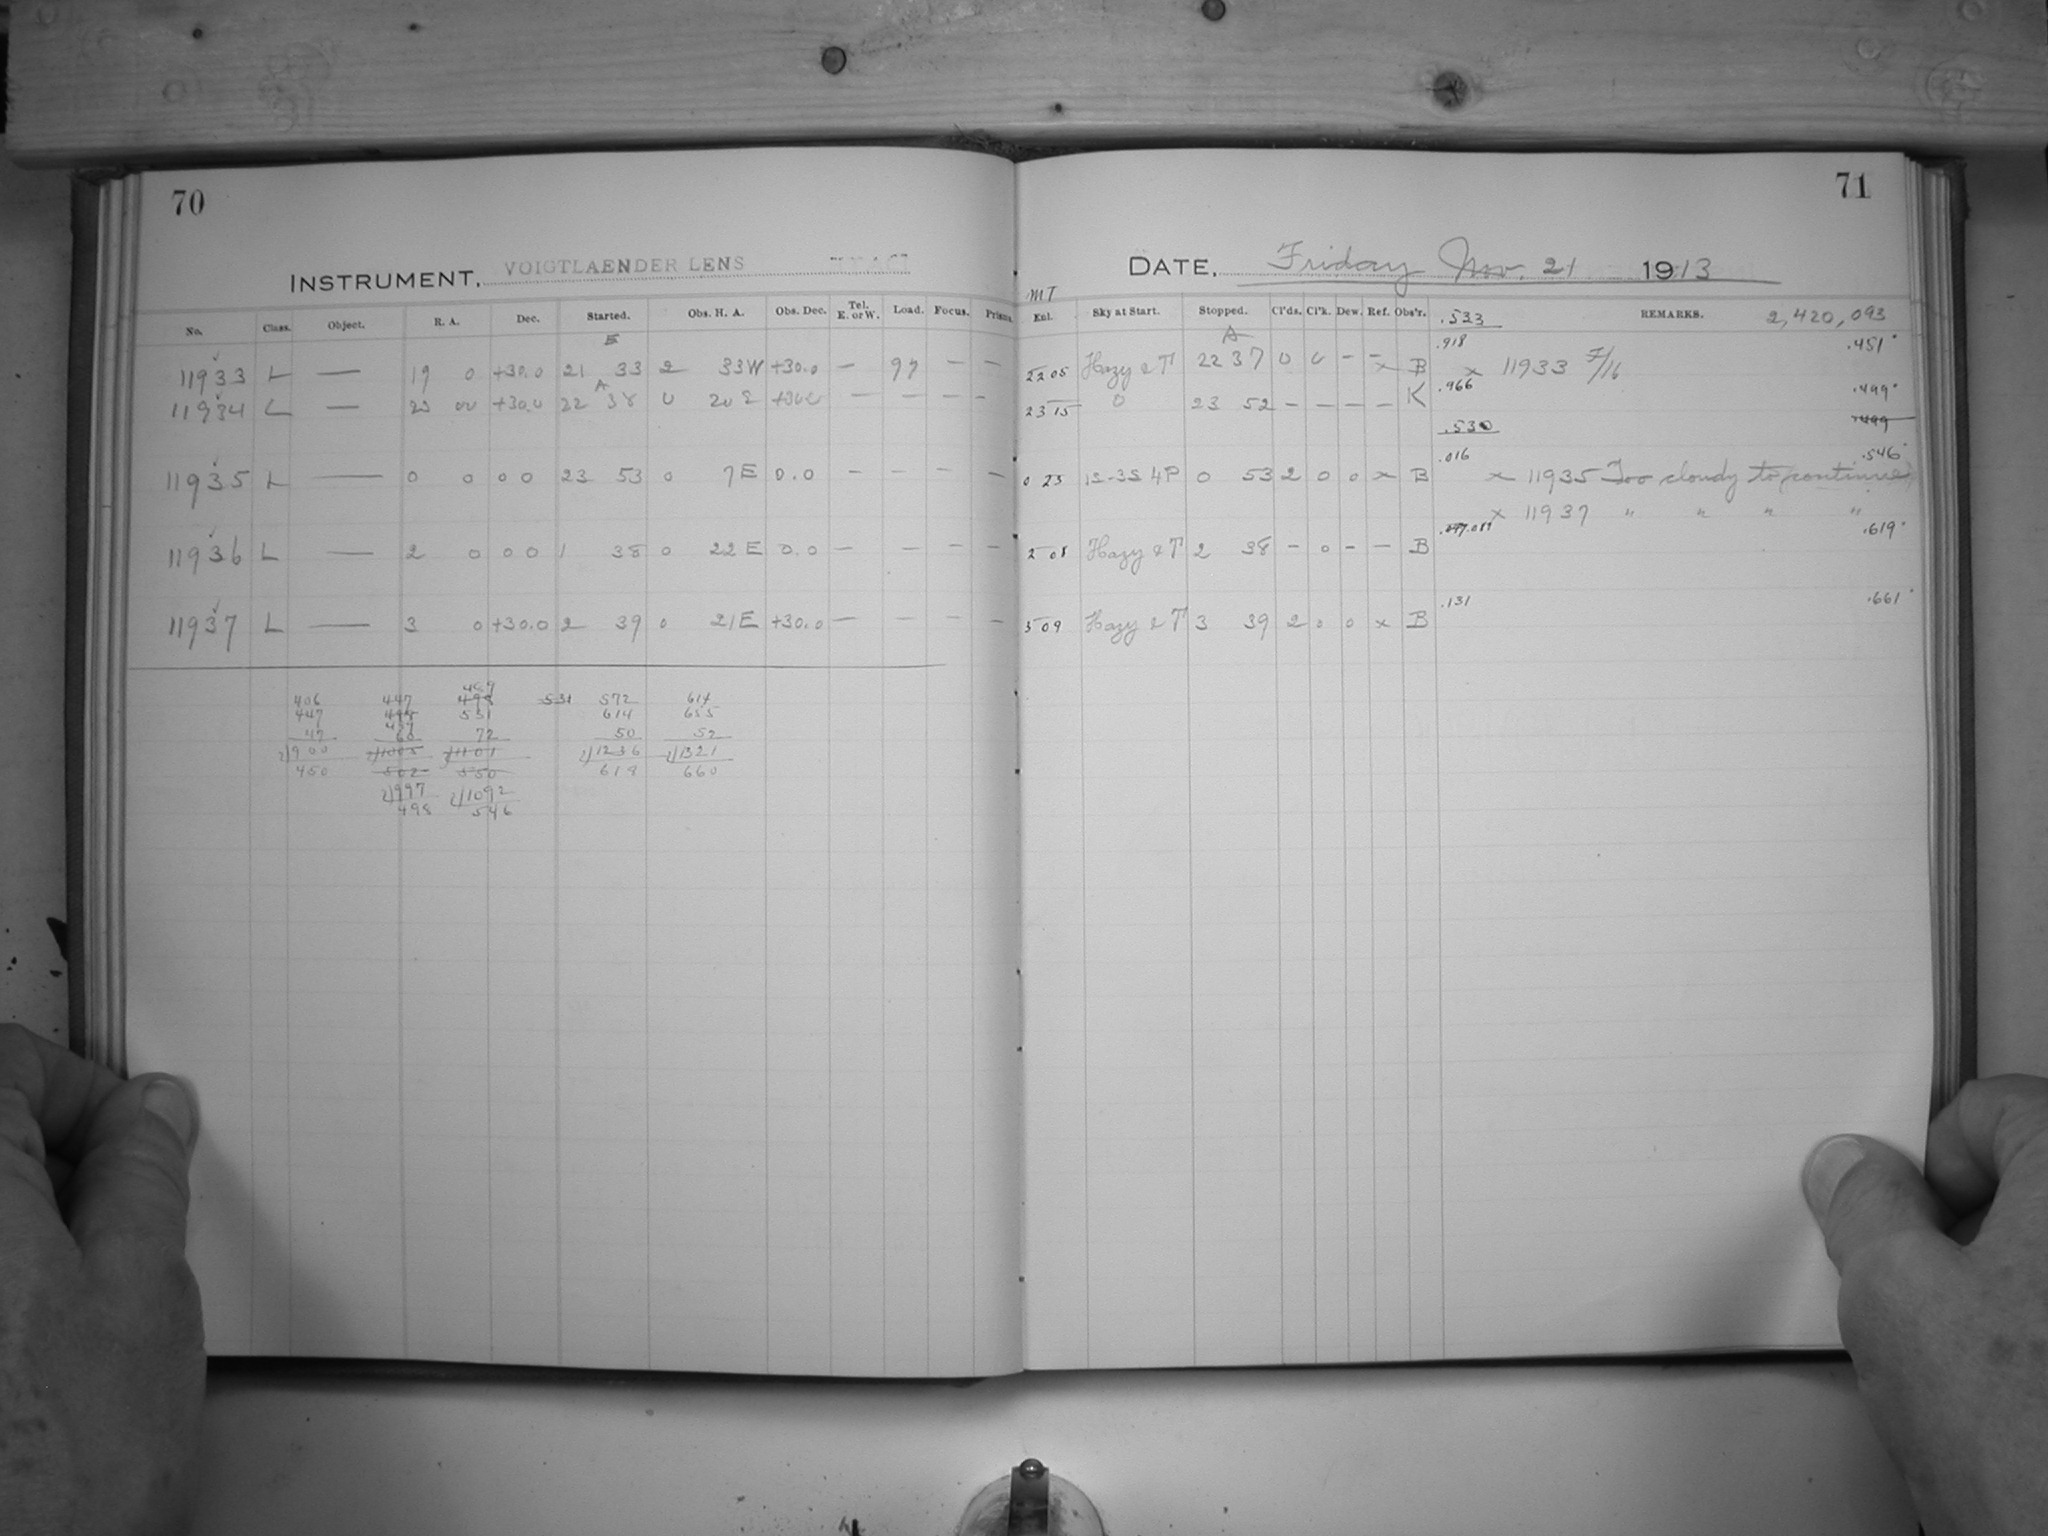 70
INSTRUMENT, VOIGTLAENDER LENS
No. Class. Object. R. A. Dec. Started. Obs. H. A. Obs. Dec. Tel. E. or W. Load. Focus. Prism.
E
11933 L — 19 0 +30.0 21 33 2 33W +30.0 — 97 — —
A
11934 L — 23 00 +30.0 22 38 0 20 E +30.0 — — — —
11935 L — 0 0 0 0 23 53 0 7E 0.0 — — — —
11936 L — 2 0 0 0 1 38 0 22E 0.0 — — — —
11937 L — 3 0 +30.0 2 39 0 21E +30.0 — — — —
469
406 447 498 531 572 614
447 498 531 614 655
47 60 72 50 52
2)900 2)1005 2)1101 2)1236 2)1321
450 502 550 618 660
2)997 2)1092
498 546
71
DATE, Friday Nov. 21 1913
MT
Enl. Sky at Start. Stopped. Cl'ds. Cl'k. Dew. Ref. Obs'r. .533 REMARKS. 2,420,093
A
.918 .451
2205 Hazy & T 22 37 0 0 — — x B x 11933 F/16
.966 .499
2315 0 23 52 — — — — K
.530 .499
.016 .546
0 23 1S-3S 4P 0 53 2 0 0 x B x 11935 Too cloudy to continue
x 11937 " " " "
.089 .619
2 08 Hazy & T 2 38 — 0 — — B
.131 .661
3 09 Hazy & T 3 39 2 0 0 x B